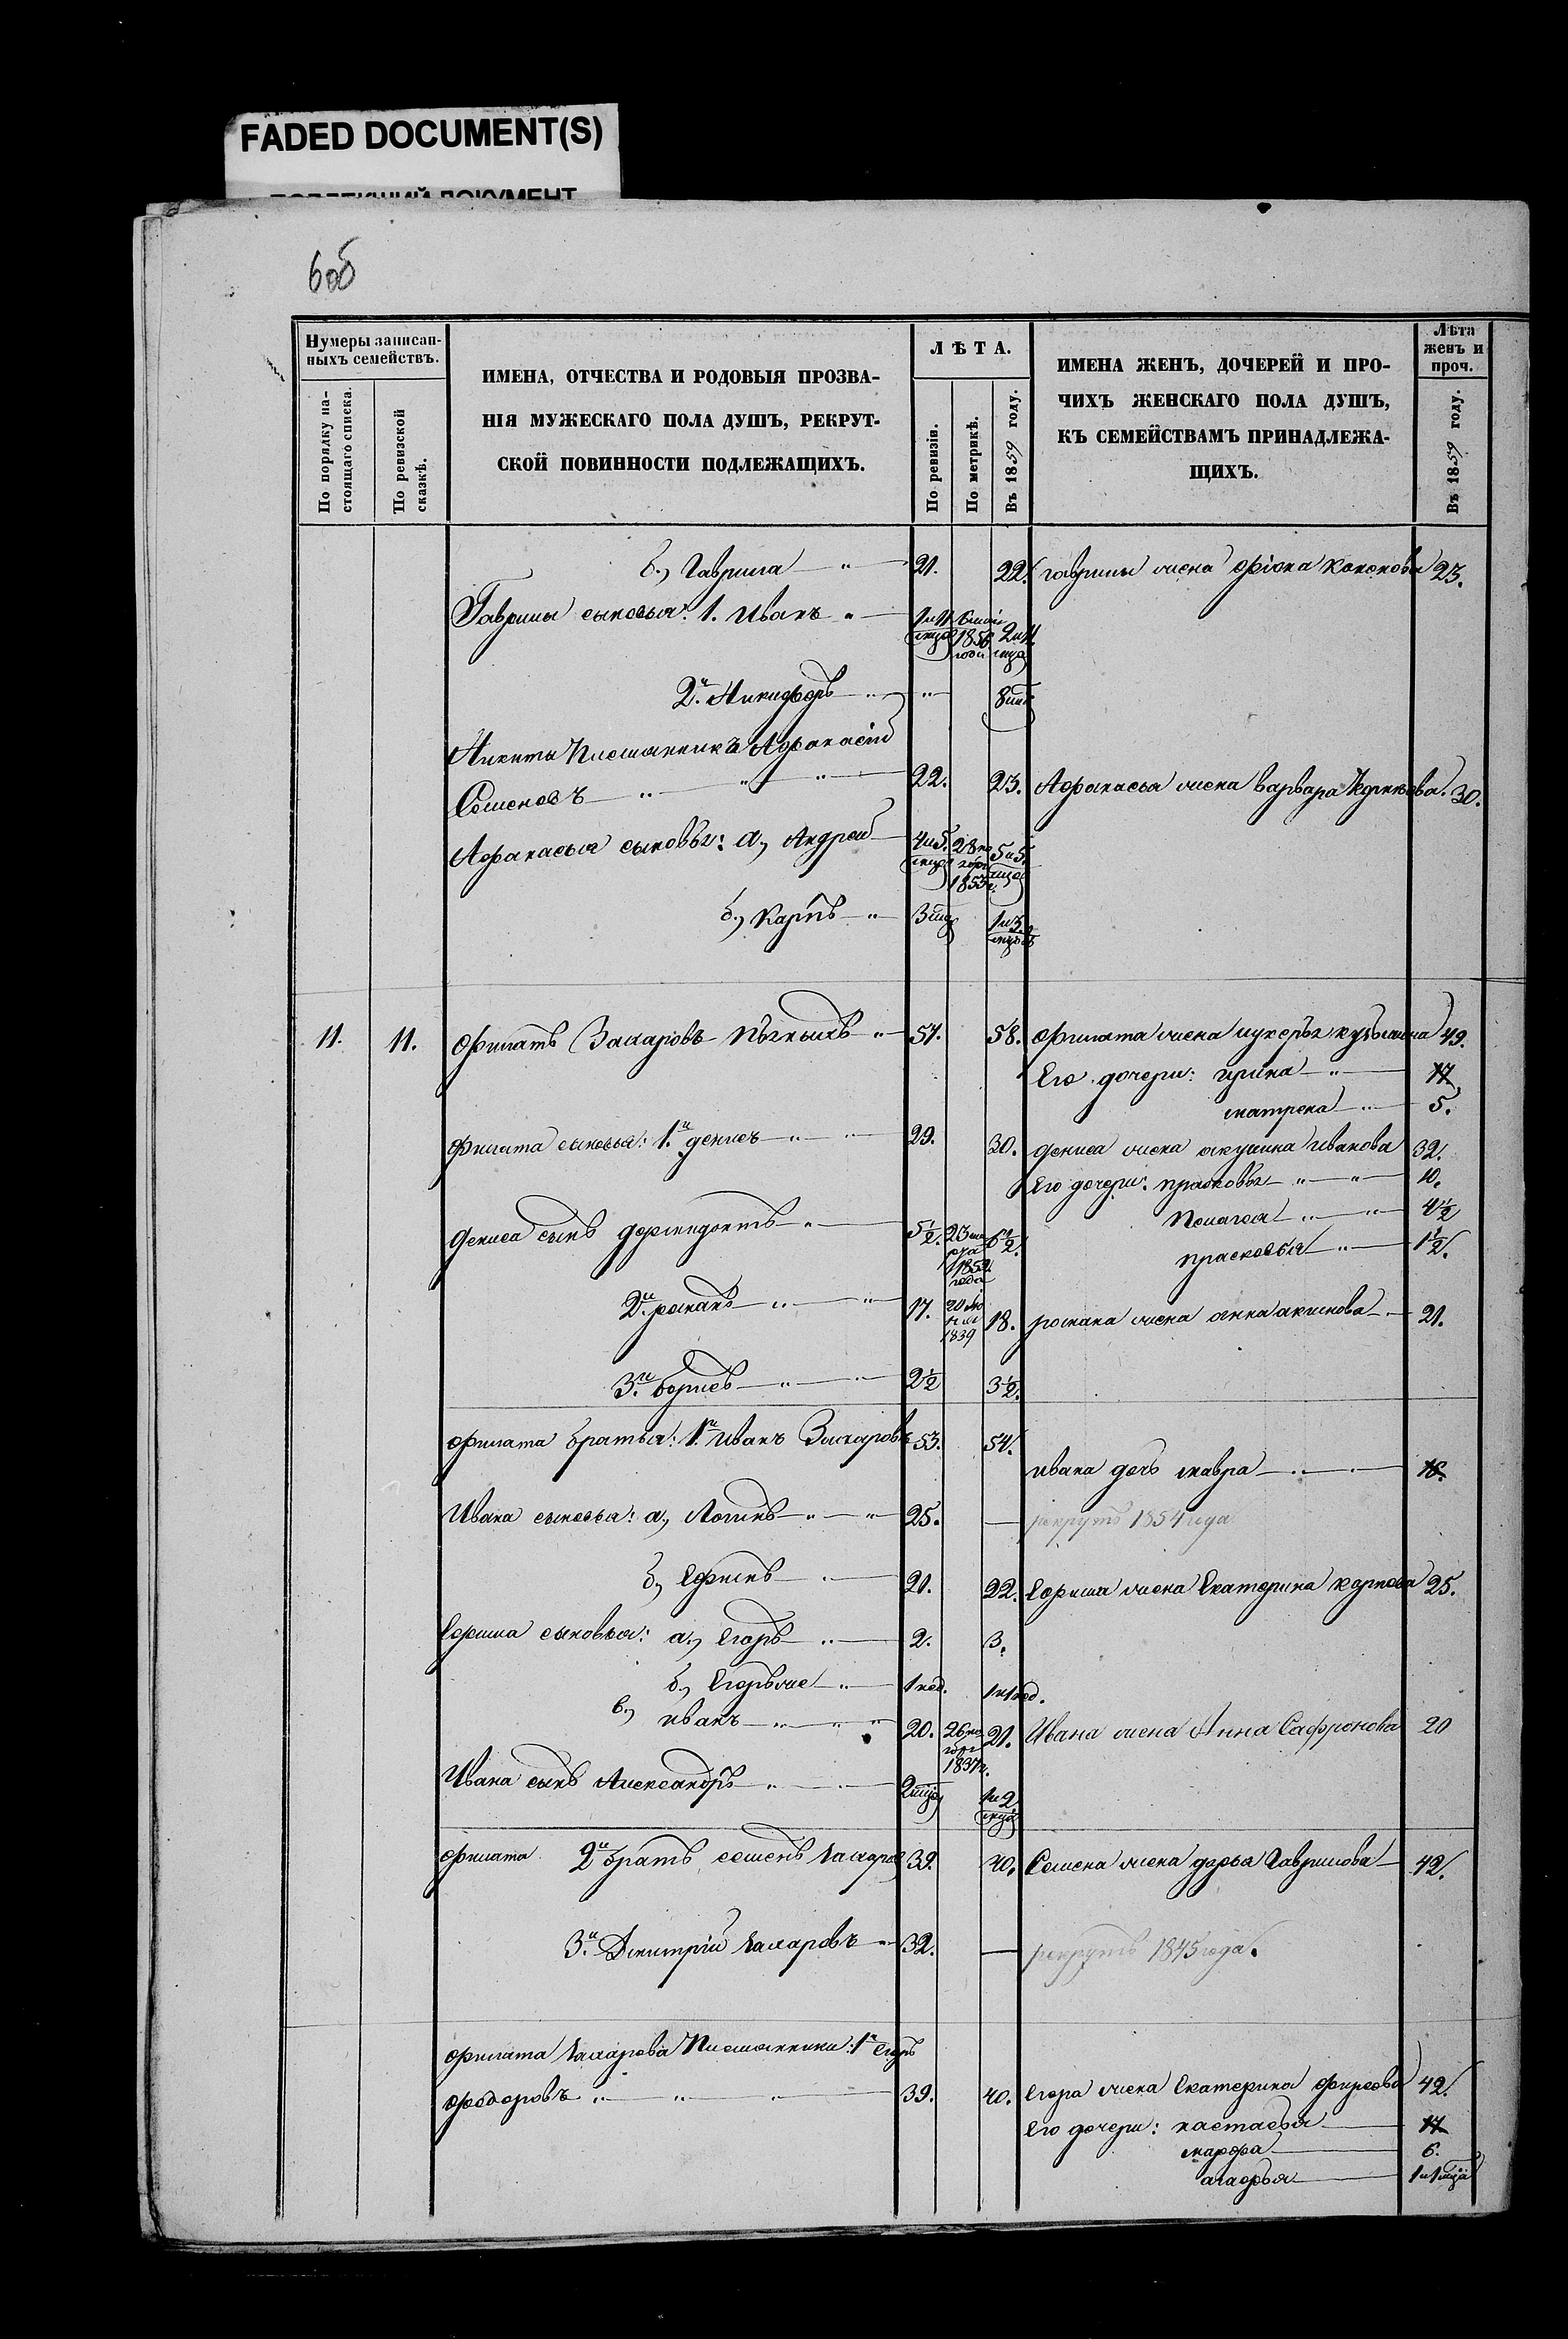 FADED DOCUMENT(S)
6об
Нумеры записан-
ныхъ семействъ.
По порядку на-
стоящаго списка.
По ревизской
сказкѣ.
ИМЕНА, ОТЧЕСТВА И РОДОВЫЯ ПРОЗВА-
НІЯ МУЖЕСКАГО ПОЛА ДУШЪ, РЕКРУТ-
СКОЙ ПОВИННОСТИ ПОДЛЕЖАЩИХЪ.
ЛѢТА.
По ревизіи.
По метрикѣ.
Въ 1859 году.
ИМЕНА ЖЕНЪ, ДОЧЕРЕЙ И ПРО-
ЧИХЪ ЖЕНСКАГО ПОЛА ДУШЪ,
КЪ СЕМЕЙСТВАМЪ ПРИНАДЛЕЖА-
ЩИХЪ.
Лѣта
женъ и
проч.
Въ 1859 году.
б., Гаврила " 21. 22. гаврилы жена 23.
Гаврилы сыновья: 1. Иванъ " 1 и 11 мцо 1856 года 2 и 11 мцо
2й Никифоръ " " 8 мц
Никиты Племянникъ Афанасій
Семеновъ " " " 22. 23. Афанасья жена варвара 30.
Афанасья сыновья: а., Андрей 4 и 5. мцо 28 но ябр 1853 г. 5 и 5. мцо
б., Карпъ " 3 мцо 1 и 3 мцов
11. 11. Филатъ Захаровъ " 57. 58. Филата жена лукерья 49.
Его дочери: ирина " 17
матрена " 5.
Филата сыновья: 1й денисъ " " 29. 30. дениса жена акулина Иванова 32.
Его дочери: прасковья " " 10.
Дениса сынъ ферапонтъ " 5½. 6½. Пелагея " " 4½
прасковья " 1½.
2й романъ " " 17. 1839 18. романа жена анна акимова 21.
3й борисъ " 2½ 3½.
филата братья: 1й Иванъ Захаровъ 53. 54.
ивана дочь мавра 18.
Ивана сыновья: а., Логинъ " " 25. — рекрутъ 1854 года
б., Ефимъ 21. 22. Ефима жена Екатерина карпова 25.
Ефима сыновья: а., Егоръ " 2. 3.
б., Егоръ же " 1 нед. 1 и 1 нед.
в., иванъ " " " 20. 26 но ябр 1837 г. 21. Ивана жена Анна Сафронова 20
Ивана сынъ Александръ " 2 мцо 1 и 2 мцо
филата 2й братъ семенъ захаров 39. 40. Семена жена дарья Гаврилова 42.
3й Дмитрій захаровъ " 32. — рекрутъ 1845 года.
филата захарова Племянники: 1й Егоръ
федоровъ " " " 39. 40. Егора жена Екатерина фирсова 42.
Его дочери: настасья 17
марфа 6.
агафья 1 и 1 мцъ